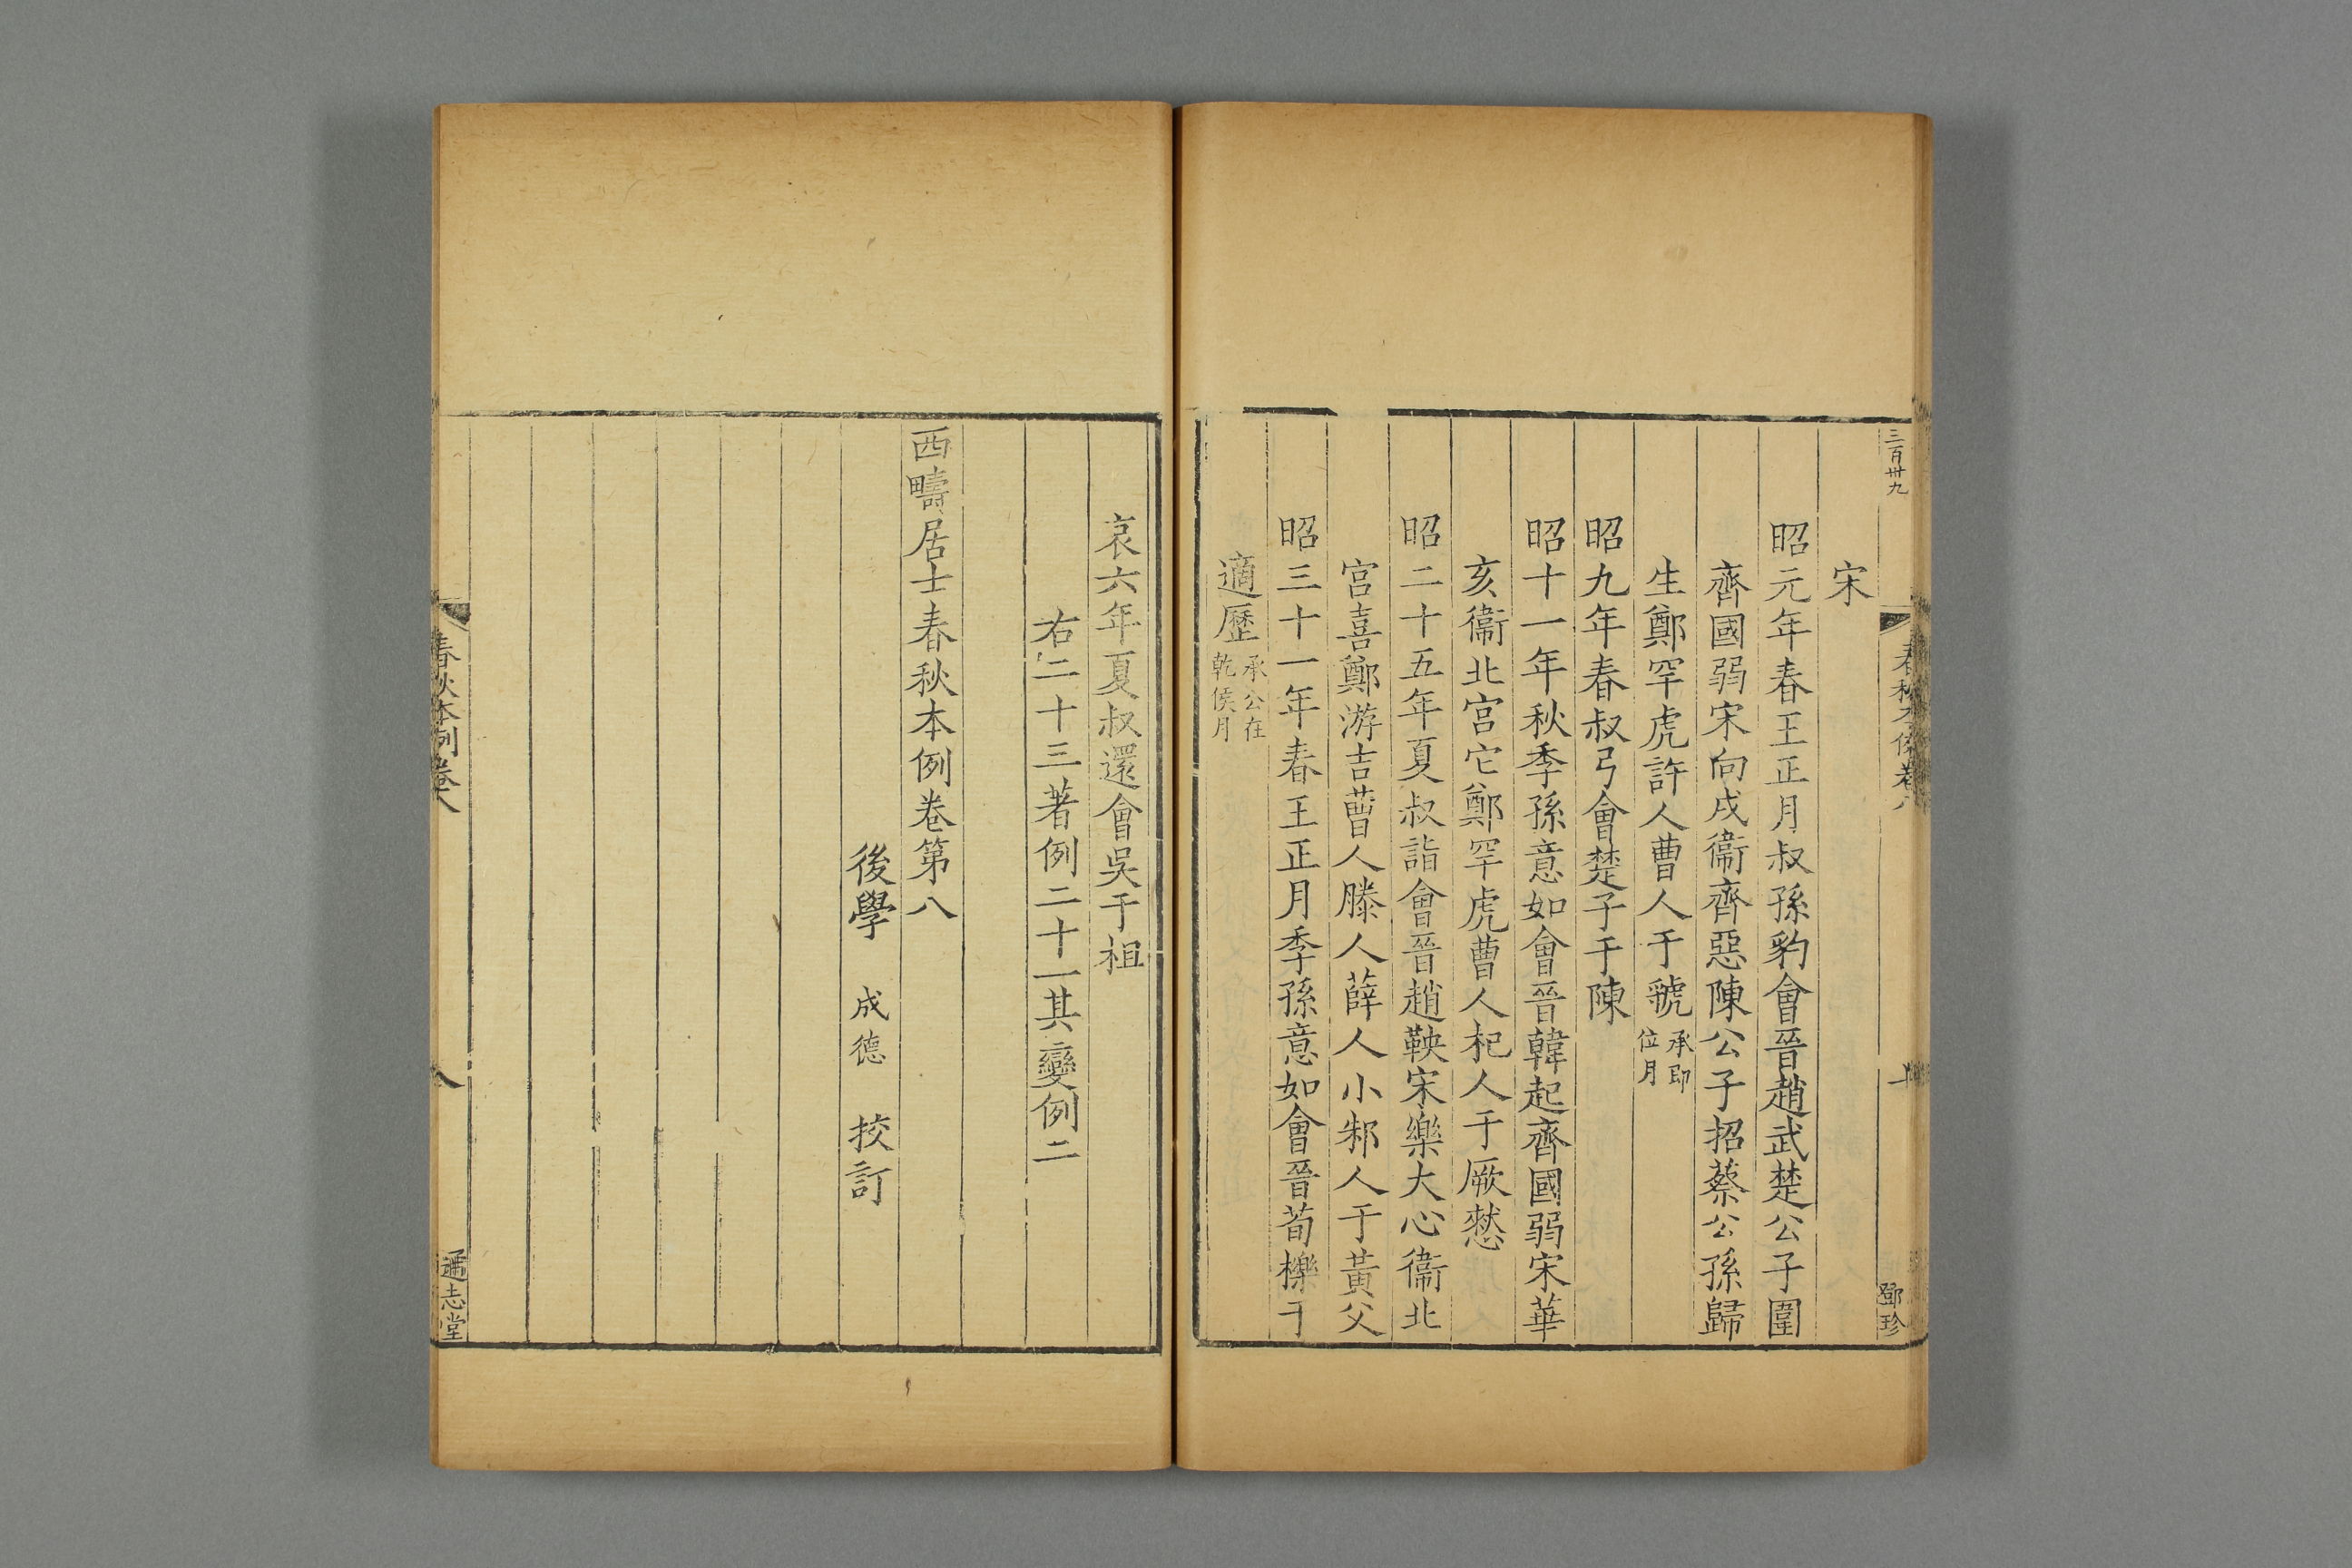 三百卅九
春秋本例卷八
鄧珍
宋
昭元年春王正月叔孫豹會晉趙武楚公子圍
齊國弱宋向戌衞齊惡陳公子招蔡公孫歸
生鄭罕虎許人曹人于虢承即位月
昭九年春叔弓會楚子于陳
昭十一年秋季孫意如會晉韓起齊國弱宋華
亥衞北宮佗鄭罕虎曹人杞人于厥憖
昭二十五年夏叔詣會晉趙鞅宋樂大心衞北
宮喜鄭游吉曹人滕人薛人小邾人于黃父
昭三十一年春王正月季孫意如會晉荀櫟于
適歷承公在乾侯月
哀六年夏叔還會吳于柤
右二十三著例二十一其變例二
西疇居士春秋本例卷第八
後學 成德 挍訂
春秋本例卷八
八
通志堂